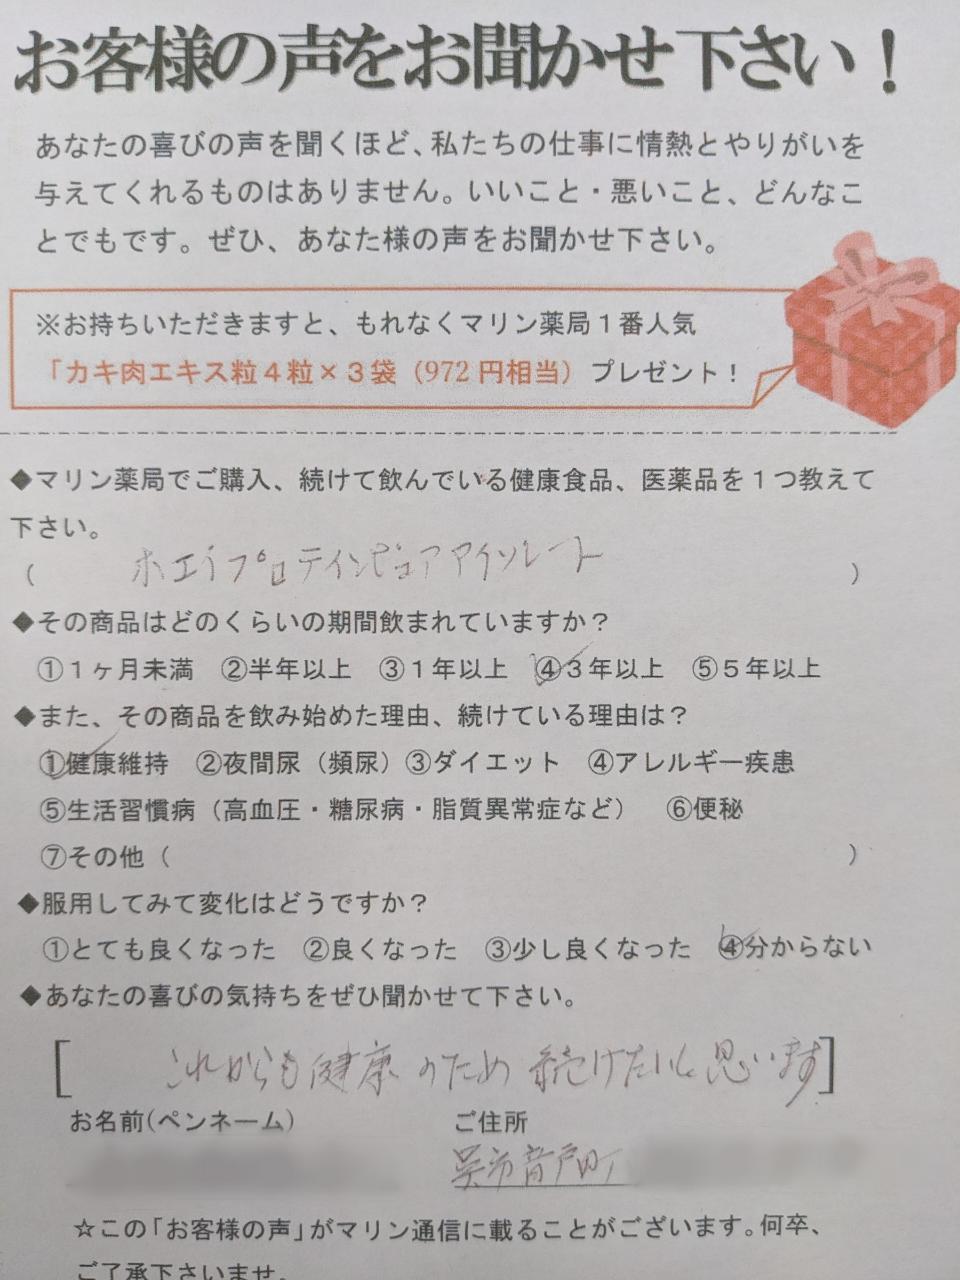 お客様の声をお聞かせ下さい！
あなたの喜びの声を聞くほど、私たちの仕事に情熱とやりがいを
与えてくれるものはありません。いいこと・悪いこと、どんなこ
とでもです。ぜひ、あなた様の声をお聞かせ下さい。
※お持ちいただきますと、もれなくマリン薬局１番人気
「カキ肉エキス粒４粒×３袋（972円相当） プレゼント！
◆マリン薬局でご購入、続けて飲んでいる健康食品、医薬品を１つ教えて
下さい。
（ ホエイプロテインピュアアイソレート ）
◆その商品はどのくらいの期間飲まれていますか？
①１ヶ月未満 ②半年以上 ③１年以上 ④３年以上 ⑤５年以上
◆また、その商品を飲み始めた理由、続けている理由は？
①健康維持 ②夜間尿（頻尿）③ダイエット ④アレルギー疾患
⑤生活習慣病（高血圧・糖尿病・脂質異常症など） ⑥便秘
⑦その他（ ）
◆服用してみて変化はどうですか？
①とても良くなった ②良くなった ③少し良くなった ④分からない
◆あなたの喜びの気持ちをぜひ聞かせて下さい。
[ これからも健康のため 続けたいと思います ]
お名前(ペンネーム) ご住所
呉市音戸町
☆この「お客様の声」がマリン通信に載ることがございます。何卒、
ご了承下さいませ。